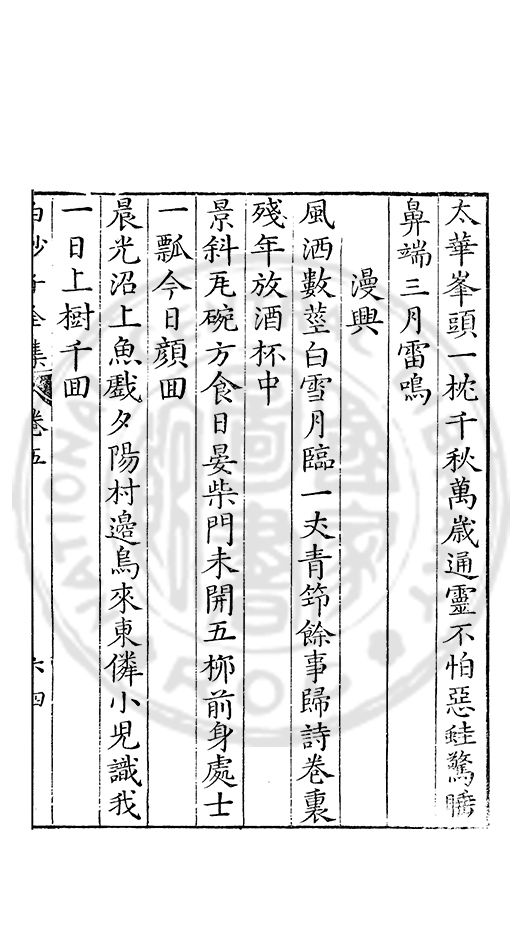 太華峯頭一枕千秋萬歲通靈不怕惡蛙驚睡
鼻端三月雷鳴
漫興
風洒數莖白雪月臨一丈青笻餘事歸詩卷裏
殘年放酒杯中
景斜瓦碗方食日晏柴門未開五柳前身處士
一瓢今日顔回
晨光沼上魚戲夕陽村邊鳥來東隣小兒識我
一日上樹千回
白沙子全集 卷五 六四